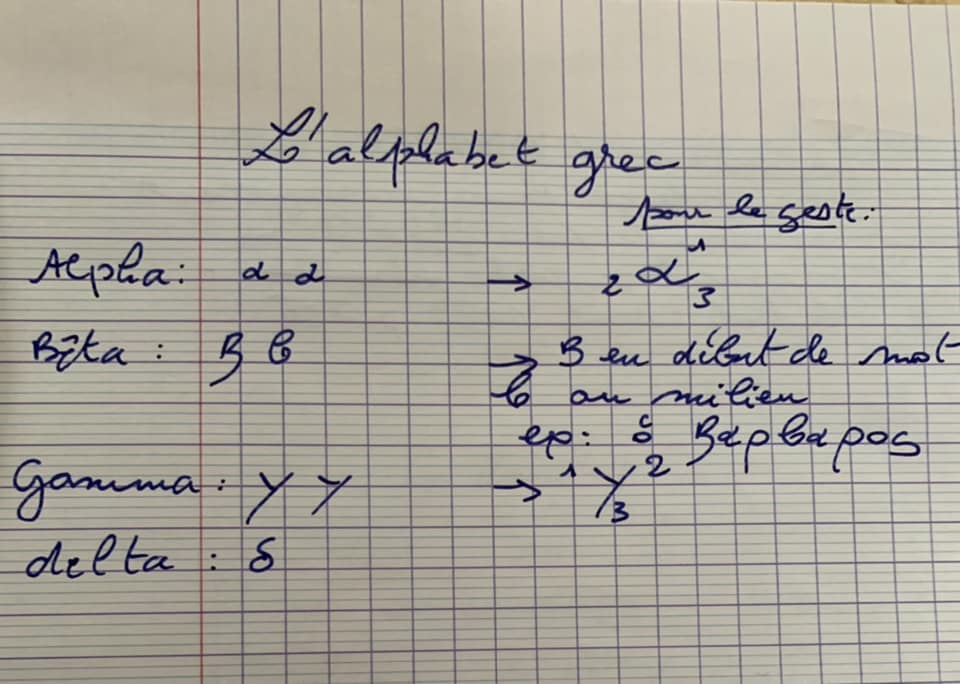 L'alphabet grec
pour le geste :
Alpha : α α → 2 α 1 3
Bêta : β ϐ → β en début de mot
ϐ au milieu
ex : ὁ βαρϐαρος
Gamma : γ γ → 1 γ 2 3
delta : δ